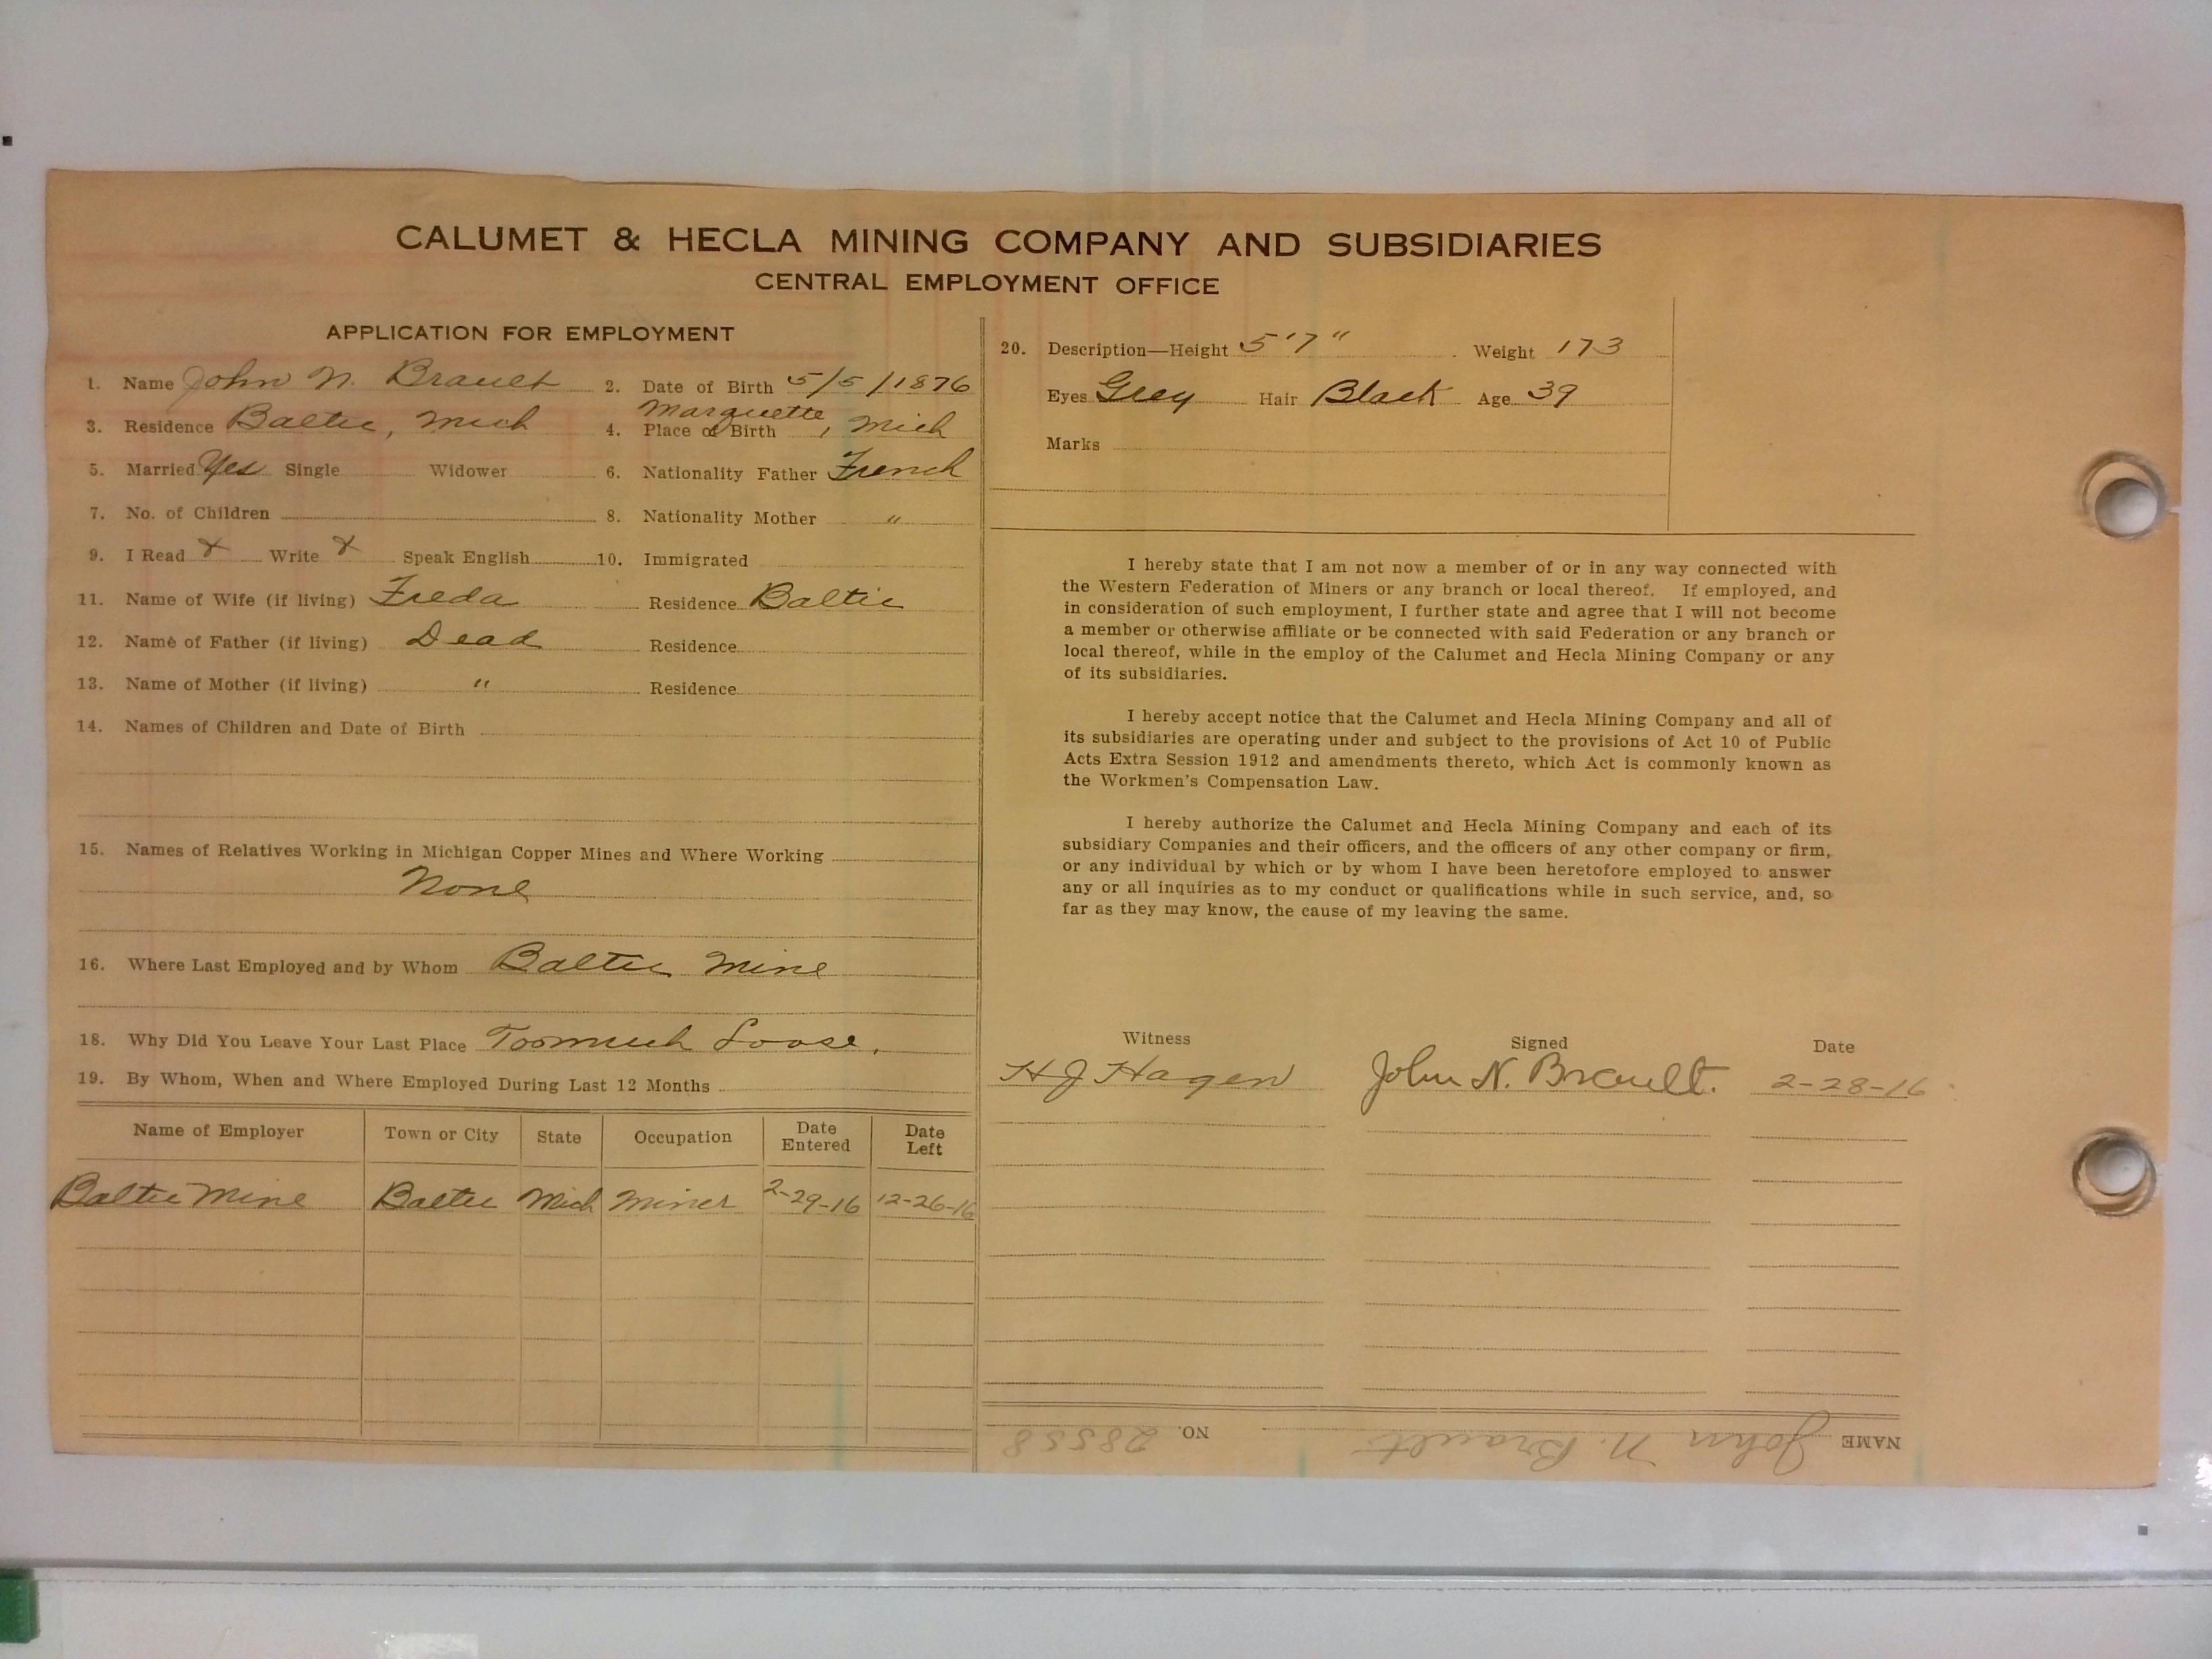 CALUMET & HECLA MINING COMPANY AND SUBSIDIARIES
CENTRAL EMPLOYMENT OFFICE
APPLICATION FOR EMPLOYMENT
1. Name John N. Brault 2. Date of Birth 5/5/1876
3. Residence Baltic, Mich 4. Place of Birth Marquette, Mich
5. Married Yes Single Widower 6. Nationality Father French
7. No. of Children 8. Nationality Mother "
9. I Read X Write X Speak English 10. Immigrated
11. Name of Wife (if living) Freda Residence Baltic
12. Name of Father (if living) Dead Residence
13. Name of Mother (if living) " Residence
14. Names of Children and Date of Birth
15. Names of Relatives Working in Michigan Copper Mines and Where Working
None
16. Where Last Employed and by Whom Baltic Mine
18. Why Did You Leave Your Last Place Toomuch Loose.
19. By Whom, When and Where Employed During Last 12 Months
Name of Employer Town or City State Occupation Date Entered Date Left
Baltic Mine Baltic Mich Miner 2-29-16 12-26-16
20. Description—Height 5'7" Weight 173
Eyes Grey Hair Black Age 39
Marks
I hereby state that I am not now a member of or in any way connected with
the Western Federation of Miners or any branch or local thereof. If employed, and
in consideration of such employment, I further state and agree that I will not become
a member or otherwise affiliate or be connected with said Federation or any branch or
local thereof, while in the employ of the Calumet and Hecla Mining Company or any
of its subsidiaries.
I hereby accept notice that the Calumet and Hecla Mining Company and all of
its subsidiaries are operating under and subject to the provisions of Act 10 of Public
Acts Extra Session 1912 and amendments thereto, which Act is commonly known as
the Workmen's Compensation Law.
I hereby authorize the Calumet and Hecla Mining Company and each of its
subsidiary Companies and their officers, and the officers of any other company or firm,
or any individual by which or by whom I have been heretofore employed to answer
any or all inquiries as to my conduct or qualifications while in such service, and, so
far as they may know, the cause of my leaving the same.
Witness Signed Date
H J Hagen John N. Brault. 2-28-16
NAME John N. Brault NO. 28558